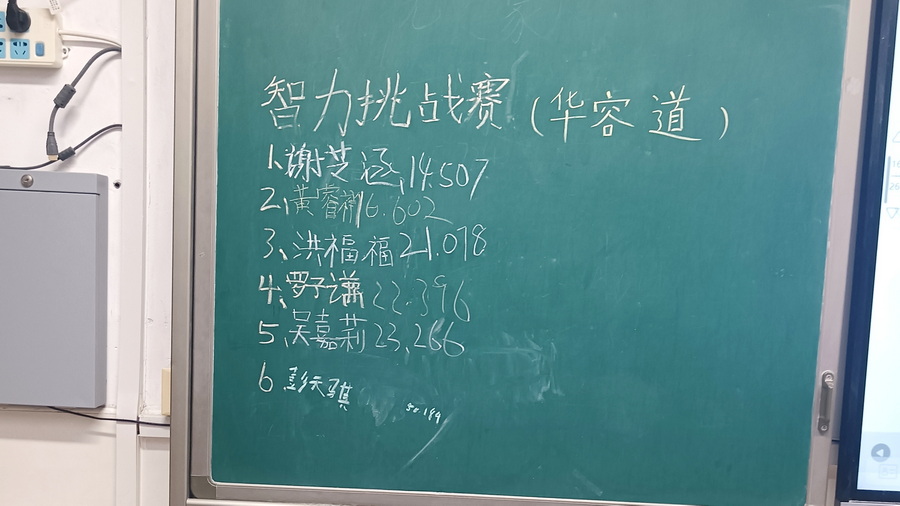 智力挑战赛（华容道）
1、谢芝涵,14.507
2、黄睿 16.602
3、洪福福21.078
4、罗子谦22.396
5、吴嘉莉23.266
6 彭天骐